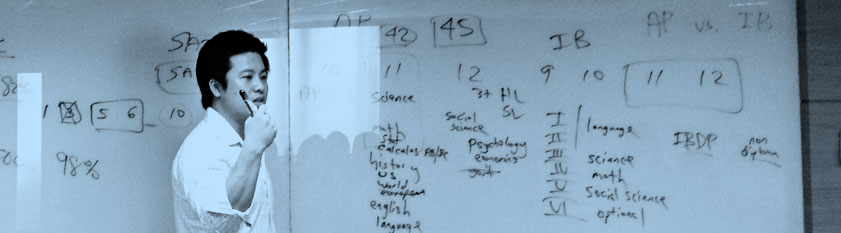 AP vs. IB
SA
AP
42 45
IB
SA
10 11 12
9 10 11 12
1 3 5 6 10
98%
science
math
calculas AB/BC
history
us
world
european
english
language
social
science
psychology
economics
3+ HL
SL
I
II
III
IV
V
VI
language
science
math
social science
optional
IBDP
non
diploma